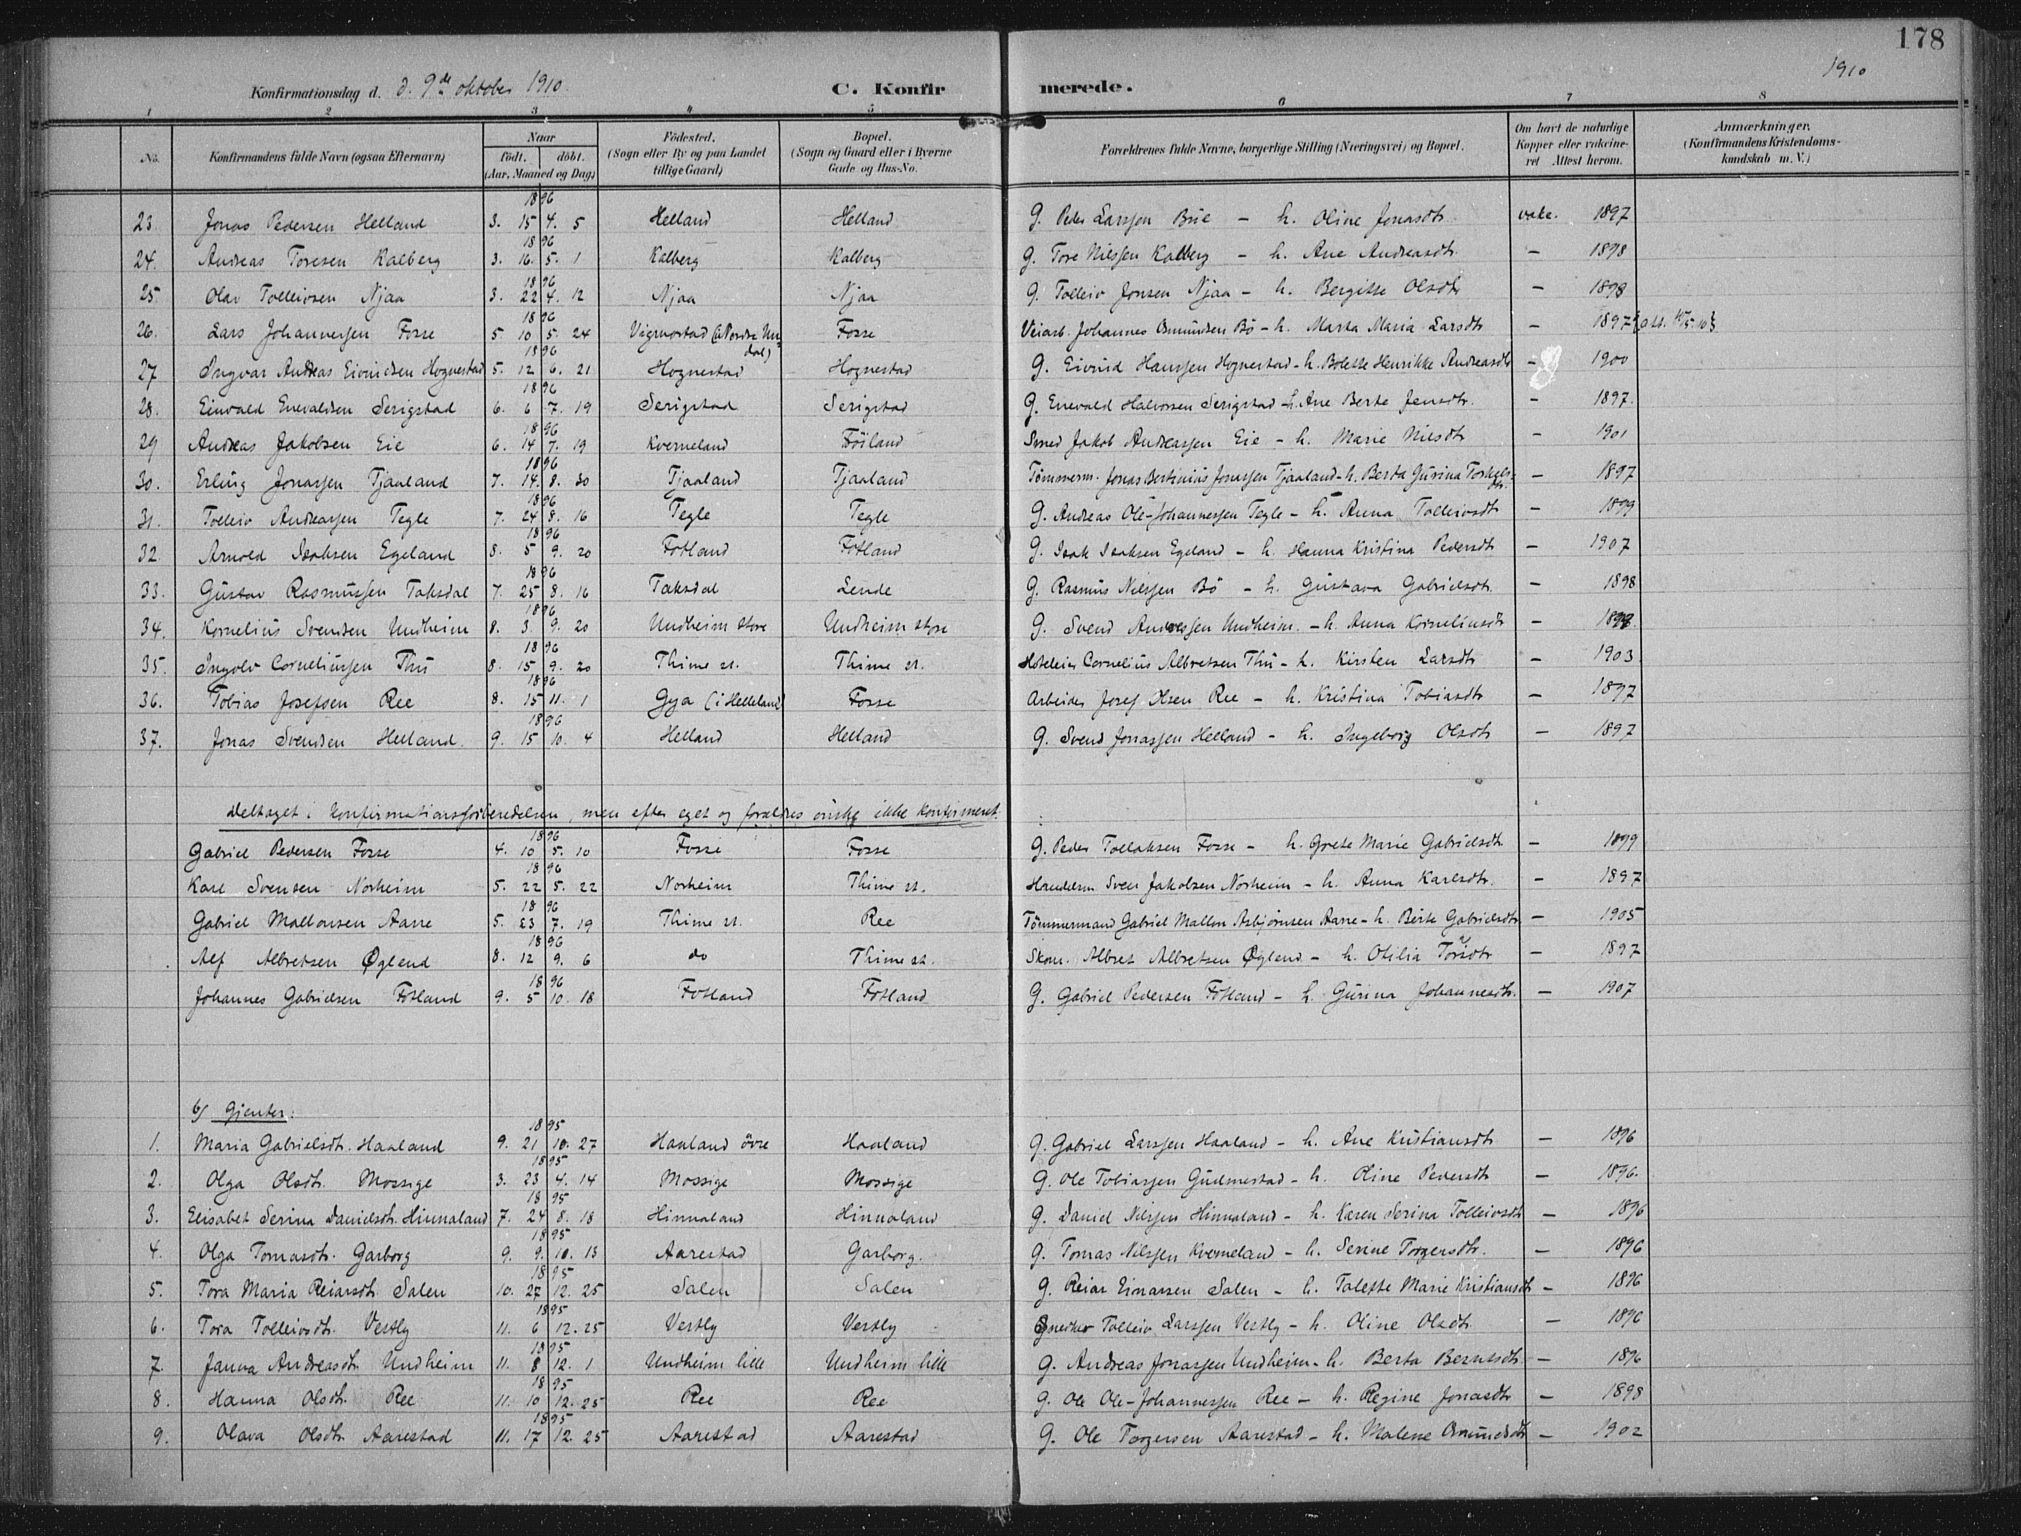 178
Konfirmationsdag d. d. 9de oktober 1910. C. Konfirmerede. 1910
1 2 3 4 5 6 7 8
No. Konfirmandens fulde Navn (ogsaa Efternavn) Naar födt. döbt. (Aar, Maaned og Dag) Födested. (Sogn eller By og paa Landet tillige Gaard) Bopæl. (Sogn og Gaard eller i Byerne Gade og Hus-No. Forældrenes fulde Navne, borgerlige Stilling (Næringsvei) og Bopæl. Om havt de naturlige Kopper eller vakcineret Attest herom. Anmærkninger. (Konfirmandens Kristendomskundskab m. V.)
23. Jonas Pedersen Helland 1896 3. 15 4. 5 Helland Helland G. Peder Larssen Bue - h. Oline Jonasdtr. vakc. 1897
24. Andreas Toresen Kalberg 1896 3. 16. 5. 1 Kalberg Kalberg G. Tore Nilssen Kalberg - h. Ane Andreasdtr. - 1898
25. Olav Tolleivsen Njaa 1896 3. 22 4. 12 Njaa Njaa G. Tolleiv Jonsen Njaa - h. Bergitte Olsdtr - 1898
26. Lars Johannessen Fosse 1896 5 10 5. 24 Vigmostad (i Nordre Undal) Fosse Veiarb. Johannes Osmundsen Bø - h. Marta Maria Larsdtr - 1897
27 Ingvar Andreas Eivindsen Hognestad 1896 5. 12 6. 21 Hognestad Hognestad G. Eivind Hanssen Hognestad - h. Bolette Henrikke Andreasdtr - 1900
28. Einvald Enevaldsen Serigstad 1896 6. 6 7. 19 Serigstad Serigstad G. Enevald Halvorsen Serigstad - h. Ane Berte Jensdtr. - 1897.
29 Andreas Jakobsen Eie 1896 6. 14 7. 19 KvernelandFöiland Smed Jakob Andreassen Eie - h. Marie Nilsdtr - 1901
30. Erling Jonassen Tjaaland 1896 7. 14. 8. 30 Tjaaland Tjaaland Tømmerm. Jonas Bertinius Jonassen Tjaaland - h. Berta Gurina Torkelsdtr. - 1897
31. Tolleiv Andreassen Tegle 1896 7. 24 8. 16 Tegle Tegle G. Andreas Ole-Johannessen Tegle - h. Anna Tolleivsdtr - 1899
32. Arnold Isaksen Egeland 1896 8. 5 9. 20 Fotland Fotland G. Isak Isaksen Egeland - h. Hanna Kristina Pedersdtr - 1907
33. Gustav Rasmussen Taksdal 1896 7. 25 8. 16 Taksdal Lende G. Rasmus Nilssen Bö - h. Gustava Gabrielsdtr. - 1898
34. Kornelius Svendsen Undheim 1896 8. 3. 9. 20 Undheim store Undheim store G. Svend Andersen Undheim. - h. Anna Korneliusdtr -
35. Ingolv Corneliussen Thu 1896 8. 15 9. 20 Thime st. Thime st. Hoteleier Cornelius Albretsen Thu - h. Kirsten Larsdtr - 1903
36. Tobias Josefsen Ree 1896 8. 15 11. 1 Gya (i Helleland) Fosse Arbeider Josef Olsen Ree - h. Kristina Tobiasdtr - 1897
37. Jonas Svendsen Helland. 1896 9. 15 10. 4 Helland Helland G. Svend Jonassen Helland - h. Ingeborg Olsdtr - 1897
Deltaget i konfirmationsforberedelsen, men efter eget og forældres önske ikke konfirmeret.
Gabriel Pedersen Fosse 1896 4. 10 5. 10 Fosse Fosse G. Peder Tollaksen Fosse - h. Grete Marie Gabrielsdtr - 1899
Karl Svensen Norheim 1896 5. 22 5. 22 Norheim Thime st. Handelsm Sven Jakobsen Norheim - h. Anna Karlsdtr. - 1897
Gabriel Mallonsen Aasse 1896 5. 23 7. 19 Thime st. Ree Tömmermand Gabriel Mallon Asbjørnsen Aasse - h. Berte Gabrielsdtr - 1905
Alf Albretsen Øglend 1896 8. 12 9. 6 do Thime st. Skom. Albret Albretsen Øglend - h. Otilia Torsdtr - 1897
Johannes Gabrielsen Fotland 1896 9. 5 10. 18 Fotland Fotland G. Gabriel Pedersen Fotland - h. Gurina Johannesdtr. - 1907
b/ Gjenter:
1. Maria Gabrielsdtr. Haaland 1895 9. 21 10. 27 Haaland övre Haaland G. Gabriel Larssen Haaland - h. Ane Kristiansdtr - 1896
2. Olga Olsdtr. Mossige 1895 3. 23 4. 14 Mossige Mossige G. Ole Tobiassen Gudmestad - h. Oline Pedersdtr - 1896.
3. Elisabet Serina Danielsdtr. Hinnaland 1895 7. 24 8. 18 Hinnaland Hinnaland G. Daniel Nilssen Hinnaland - h. Karen Serina Tolleivsdtr - 1896
4. Olga Tomasdtr. Garborg 1895 9. 9. 10. 13 Aarestad Garborg. G. Tomas Nilssen Kverneland - h. Serine Torgersdtr. - 1896
5. Tora Maria Reiarsdtr. Salen 1895 10. 27 12. 25 Salen Salen G. Reiar Einarsen Salen - h. Talette Marie Kristiansdtr - 1896
6. Tora Tolleivsdtr. Vestly 1895 11. 6 12. 25 Vestly Vestly Snedker Tolleiv Larssen Vestly - h. Oline Olsdtr. - 1896
7. Janna Andreasdtr. Undheim 1895 11. 8 12. 1 Undheim lille Undheim lille G. Andreas Jonassen Undheim - h. Berta Berntsdtr - 1896
8. Hanna Olsdtr. Ree 1895 11. 10 12. 25 Ree Ree G. Ole Ole-Johannessen Ree - h. Regine Jonasdtr - 1898
9. Olava Olsdtr. Aarestad 1895 11. 17 12. 25 Aarestad Aarestad G. Ole Torgersen Aarestad - h. Malene Osmundsdtr - 1902